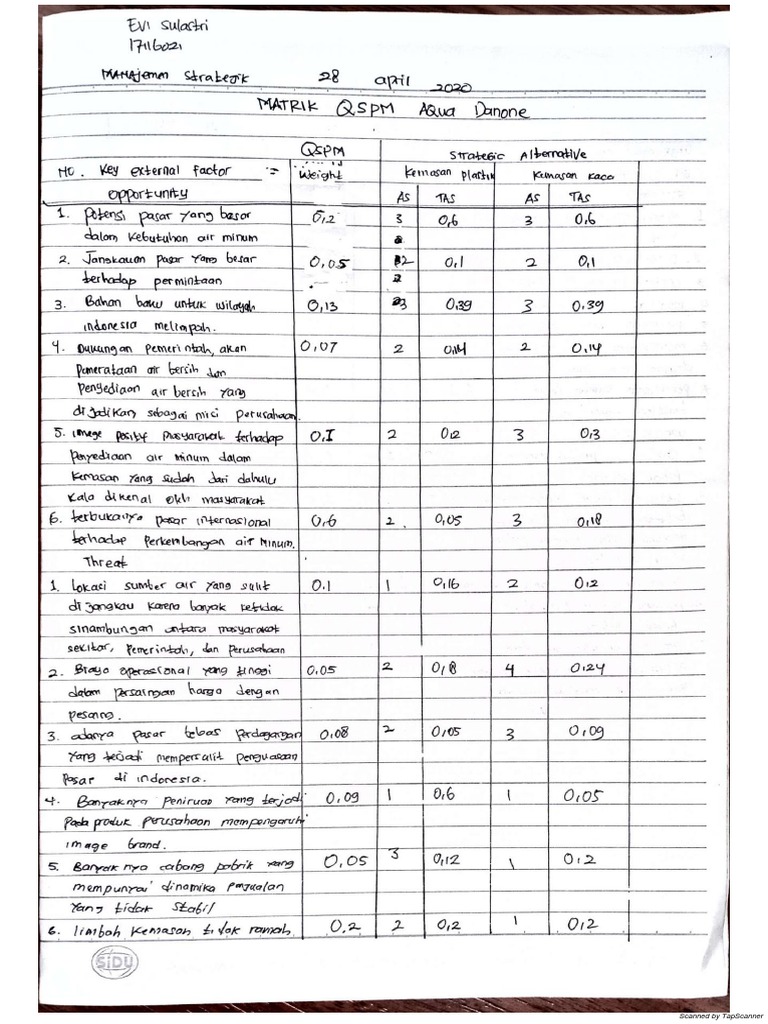 Evi Sulastri
17116021
Manajemen Strategik 28 April 2020
MATRIK QSPM Aqua Danone
QSPM Strategic Alternative
No. Key external factor := Weight Kemasan plastik Kemasan kaca
opportunity AS TAS AS TAS
1. potensi pasar yang besar 0,2 3 0,6 3 0,6
dalam kebutuhan air minum
2. Jangkauan pasar yang besar 0,05 2 0,1 2 0,1
terhadap permintaan
3. Bahan baku untuk wilayah 0,13 3 0,39 3 0,39
indonesia melimpah.
4. Dukungan pemerintah, akan 0,07 2 0,14 2 0,14
pemerataan air bersih dan
Penyediaan air bersih yang
dijadikan sebagai misi perusahaan.
5. image positif masyarakat terhadap 0,1 2 0,2 3 0,3
penyediaan air minum dalam
kemasan yang sudah dari dahulu
kala dikenal oleh masyarakat
6. terbukanya pasar internasional 0,6 2. 0,05 3 0,18
terhadap perkembangan air minum.
Threat
1. Lokasi sumber air yang sulit 0,1 1 0,16 2 0,2
di jangkau karena banyak ketidak
sinambungan antara masyarakat
sekitar, pemerintah, dan perusahaan
2. Biaya operasional yang tinggi 0,05 2 0,8 4 0,24
dalam persaingan harga dengan
pesaing.
3. adanya pasar bebas perdagangan 0,08 2 0,05 3 0,09
yang terjadi mempersulit penguasaan
pasar di indonesia.
4. Banyaknya peniruan yang terjadi 0,09 1 0,6 1 0,05
pada produk perusahaan mempengaruhi
image brand.
5. Banyak nya cabang pabrik yang 0,05 3 0,12 1 0,2
mempunyai dinamika penjualan
yang tidak stabil
6. limbah kemasan tidak ramah 0.2 2 0,2 1 0,2
SiDU
Scanned by TapScanner